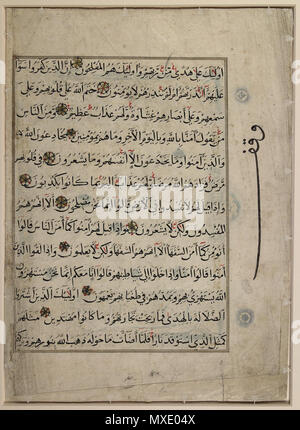 اولئك على هدى من ربهم واولئك هم المفلحون ان الذين كفروا سوا
عليهم ءانذرتهم ام لم تنذرهم لا يؤمنون ختم الله على قلوبهم وعلى
سمعهم وعلى ابصارهم غشاوة ولهم عذاب عظيم ومن الناس
من يقول امنا بالله وباليوم الاخر وما هم بمؤمنين يخادعون الله
والذين امنوا وما يخدعون الا انفسهم وما يشعرون في قلوبهم
مرض فزادهم الله مرضا ولهم عذاب اليم بما كانوا يكذبون
واذا قيل لهم لا تفسدوا في الارض قالوا انما نحن مصلحون الا انهم هم
المفسدون ولكن لا يشعرون واذا قيل لهم امنوا كما امن الناس قالوا
انؤمن كما امن السفها الا انهم هم السفها ولكن لا يعلمون واذا لقوا الذين
امنوا قالوا امنا واذا خلوا الى شياطينهم قالوا انا معكم انما نحن مستهزؤن
الله يستهزئ بهم ويمدهم في طغيانهم يعمهون اولئك الذين اشتروا
الضلالة بالهدى فما ربحت تجارتهم وما كانوا مهتدين مثلهم
كمثل الذي استوقد نارا فلما اضات ما حوله ذهب الله بنورهم و
وقف
alamy
Image ID: MXE04X
www.alamy.com